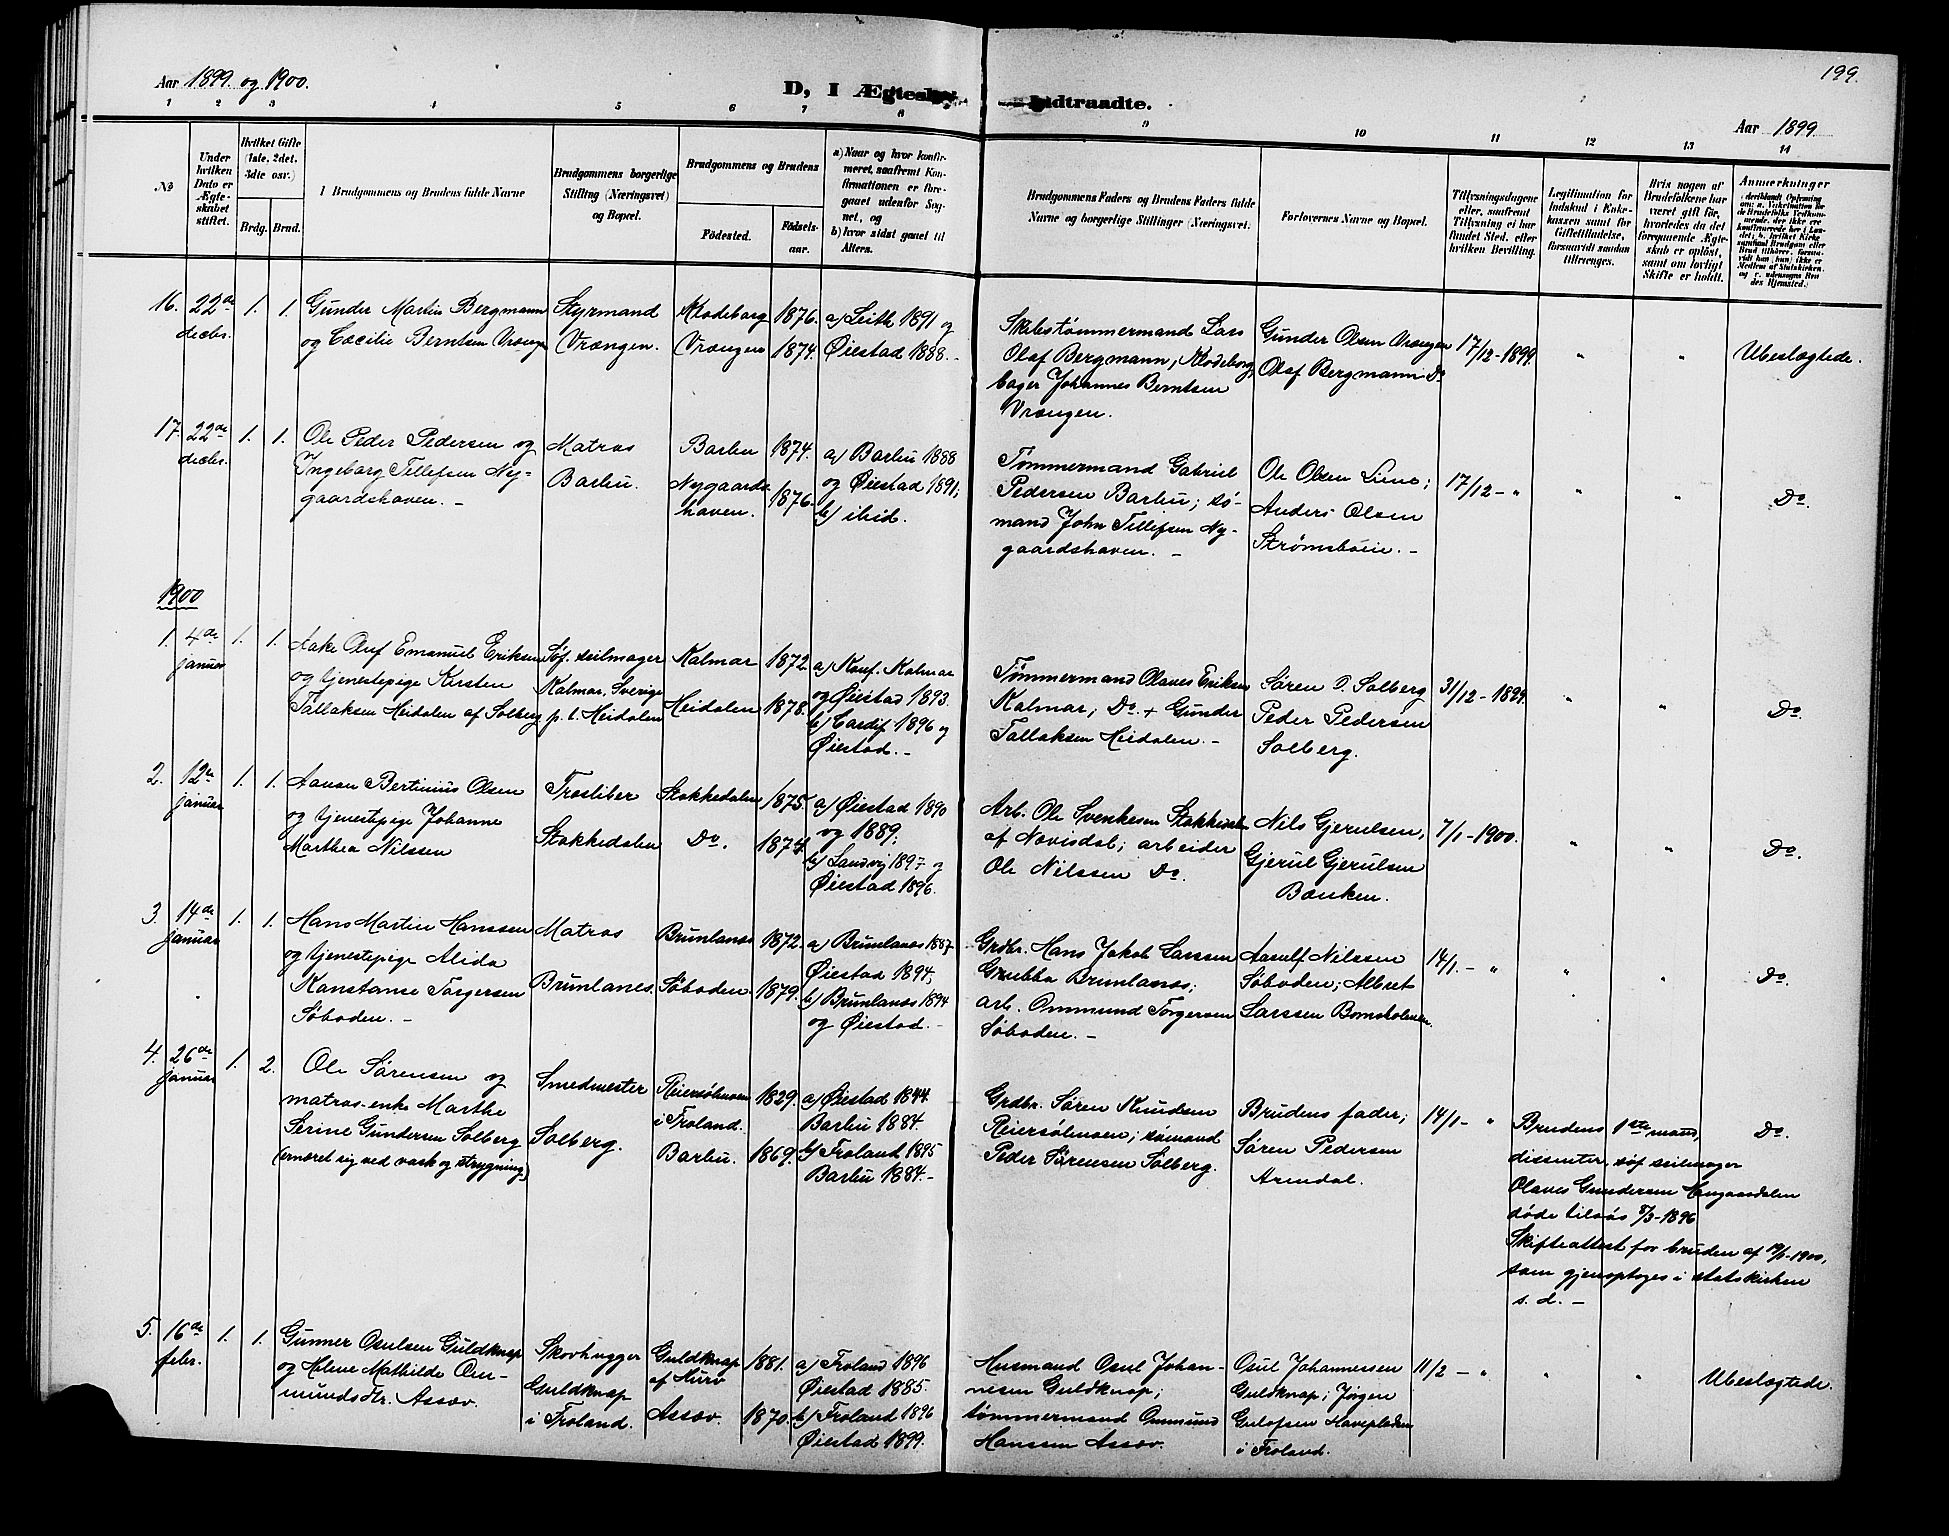 199.
Aar 1899. og 1900.
D, I Ægtes
Indtraadte.
Aar 1899.
1 2 3 4 5 6 7 8 9 10 11 12 13 14
No
Under hvilken Dato er Ægteskabet stiftet.
Hvilket Gifte (1ste, 2det, 3die osv.)
Brdg. Brud.
Brudgommens og Brudens fulde Navne
Brudgommens borgerlige Stilling (Næringsvei) og Bopæl.
Brudgommens og Brudens
Fødested.
Fødselsaar.
a) Naar og hvor konfirmeret, saafremt Konfirmationen er foregaaet udenfor Sognet, og
b) hvor sidst gaaet til Alters.
Brudgommens Faders og Brudens Faders fulde Navne og borgerlige Stillinger (Næringsvei).
Forlovernes Navne og Bopæl.
Tillysningsdagene eller, saafremt Tillysning ei har fundet Sted, efter hvilken Bevilling.
Legitimation for Indskud i Enkekassen samt for Giftetilladelse, forsaavidt saadan tiltrænges.
Hvis nogen af Brudefolkene har været gift før, hvorledes da det foregaaende Ægteskab er opløst, samt om lovligt Skifte er holdt.
Anmerkninger
16. 22de decbr. 1. 1.
Gunder Martin Bergmann
og Cæcilie Berntsen Vrængen
Styrmand
Vrængen.
Klodeborg 1876.
Vrængen 1874.
a) Leith 1891 og
Øiestad 1888. -
Skibstømmermand Lars
Olaf Bergmann, Klodeborg,
bager Johannes Berntsen
Vrængen.
Gunder Olsen Vrængen
Olaf Bergmann Do
17/12-1899. " "
Ubeslægtede.
17. 22de decbr. 1. 1.
Ole Peder Pedersen og
Ingeborg Tellefsen Ny-
gaardshaven. -
Matros
Barbu.
Barbu 1874.
Nygaards-
haven. 1876.
a) Barbu 1888
og Øiestad 1891;
b) ibid.
Tømmermand Gabriel
Pedersen Barbu; sø-
mand John Tellefsen Ny-
gaardshaven. -
Ole Olsen Lime;
Anders Olsen
Strømsboie. -
17/12 - " " "
Do.
1900
1. 4de januar 1. 1.
Aake Oluf Emanuel Eriksen
og tjenestepige Kirsten
Tallaksen Heidalen af Solberg
Søf. seilmager
Kalmar, Sverige
p. t. Heidalen
Kalmar 1872.
Heidalen 1878.
a) Konf. Kalmar
og Øiestad 1893.
b) Cardif 1896 og
Øiestad. -
Tømmermand Olaves Eriksen
Kalmar; Do. + Gunder
Tallaksen Heidalen. -
Søren P. Solberg
Peder Pedersen
Solberg.
31/12-1899. " "
Do.
2. 12te januar 1. 1.
Aanon Bertinius Olsen
og tjenestepige Johanne
Marthea Nilssen
Træsliber
Stokkedalen
Stokkedalen 1875.
Do. 1874.
a) Øiestad 1890
og 1889;
b) Landvig 1897 og
Øiestad 1896.
Arb. Ole Svenkesen Stokkedalen
af Novisdal; arbeider
Ole Nilssen Do.
Nils Gjerulsen,
Gjerul Gjerulsen
Bænken.
7/1-1900. " "
Do.
3. 14de januar 1. 1.
Hans Martin Hanssen
og tjenestepige Alida
Konstanse Torgersen
Søboden. -
Matros
Brunlanes.
Brunlanes 1872.
Søboden. 1879.
a) Brunlanes 1887
Øiestad 1894;
b) Brunlanes 1894
og Øiestad. -
Grdbr. Hans Jakob Larssen
Grubba Brunlanes;
arb. Ommund Torgersen
Søboden. -
Aasulf Nilssen
Søboden; Albret
Larssen Bomsholmen.
14/1. - " " "
Do.
4. 26de januar 1. 2.
Ole Sørensen og
matros-enke Marthe
Serine Gundersen Solberg
(ernæret sig ved vask og strygning)
Smedmester
Solberg.
Reiersølmoen 1829.
i Froland.
Barbu. 1869.
a) Øiestad 1844.
Barbu 1884.
b) Froland 1895
Barbu 1884. -
Grdbr. Søren Knudsen
Reiersølmoen; sømand
Peder Sørensen Solberg.
Brudens fader;
Søren Pedersen
Arendal.
14/1- "
Brudens 1ste mand,
dissenter, søf seilmager
Olaves Gundersen Haugaasdalen
døde tilsøs 5/3-1896
Skifteattest for bruden af 19/1-1900,
som gjenoptoges i statskirken
s. d. -
Do.
5. 16de febr. 1. 1.
Gunner Osulsen Guldknap
og Helene Mathilde Om-
mundsdtr. Assæv.
Skovhugger
Guldknap
i Froland.
Guldknap 1881.
af Hurv
Assæv. 1870.
a) Froland 1896
Øiestad 1885.
b) Froland 1896
Øiestad 1899.
Husmand Osul Johan-
nesen Guldknap;
tømmermand Ommund
Hanssen Assæv.
Osul Johannessen
Guldknap; Jørgen
Gulofsen Havepladsen
i Froland.
11/2 - " " "
Ubeslægtede.